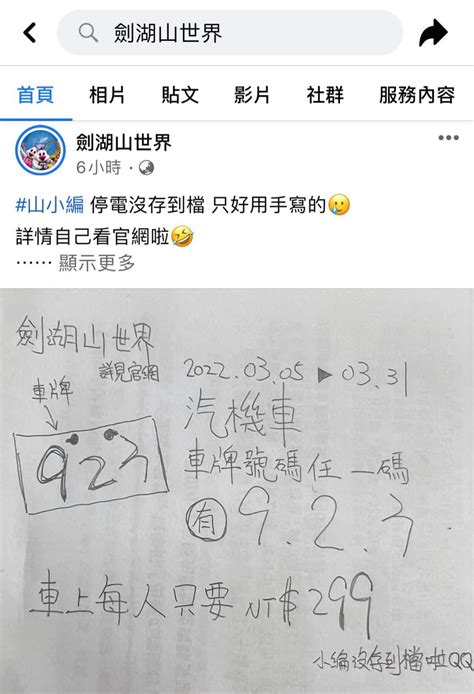 劍湖山世界
首頁 相片 貼文 影片 社群 服務內容
劍湖山世界
6小時
#山小編 停電沒存到檔 只好用手寫的🥲
詳情自己看官網啦🤣
…… 顯示更多
劍湖山世界
詳見官網
2022.03.05 ▶ 03.31
車牌
汽機車
923
車牌號碼任一碼
有 9.2.3
車上每人只要 NT$299
小編沒存到檔啦QQ